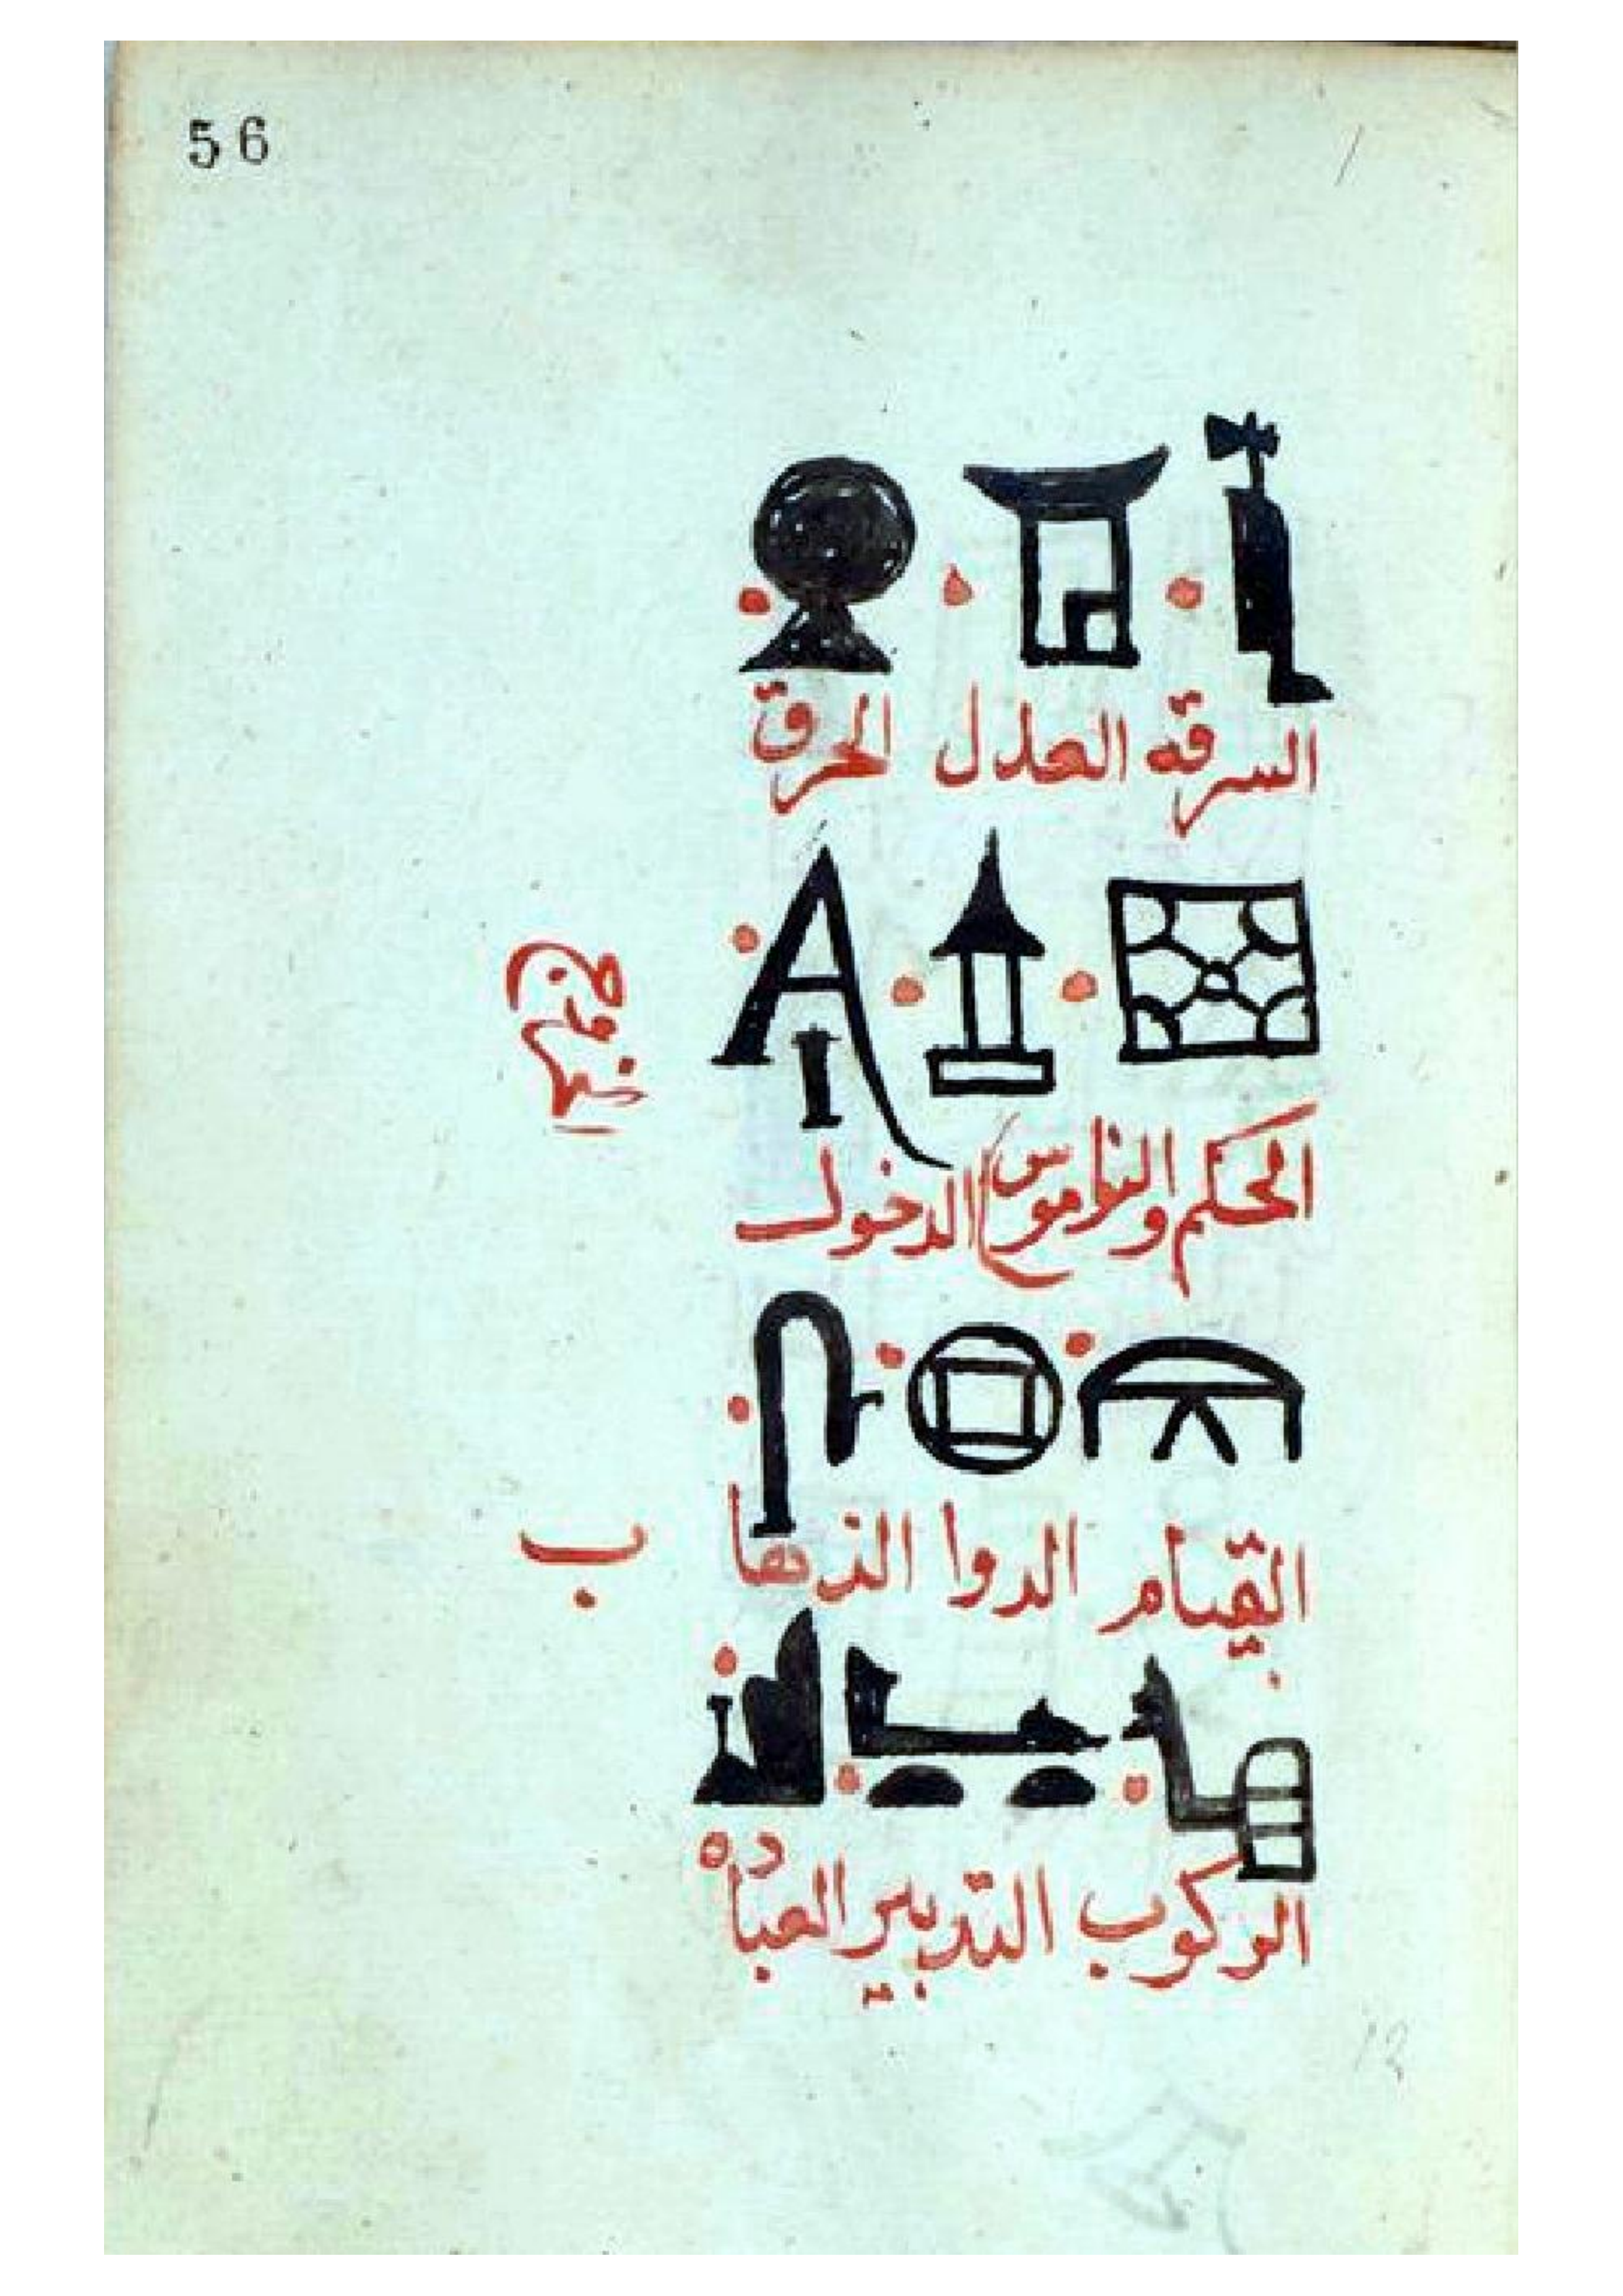 56
السرقه العدل الحرق
الحكم والناموس الدخول
الخروج
القيام الدوا الذها
ب
الركوب التدبير العباده